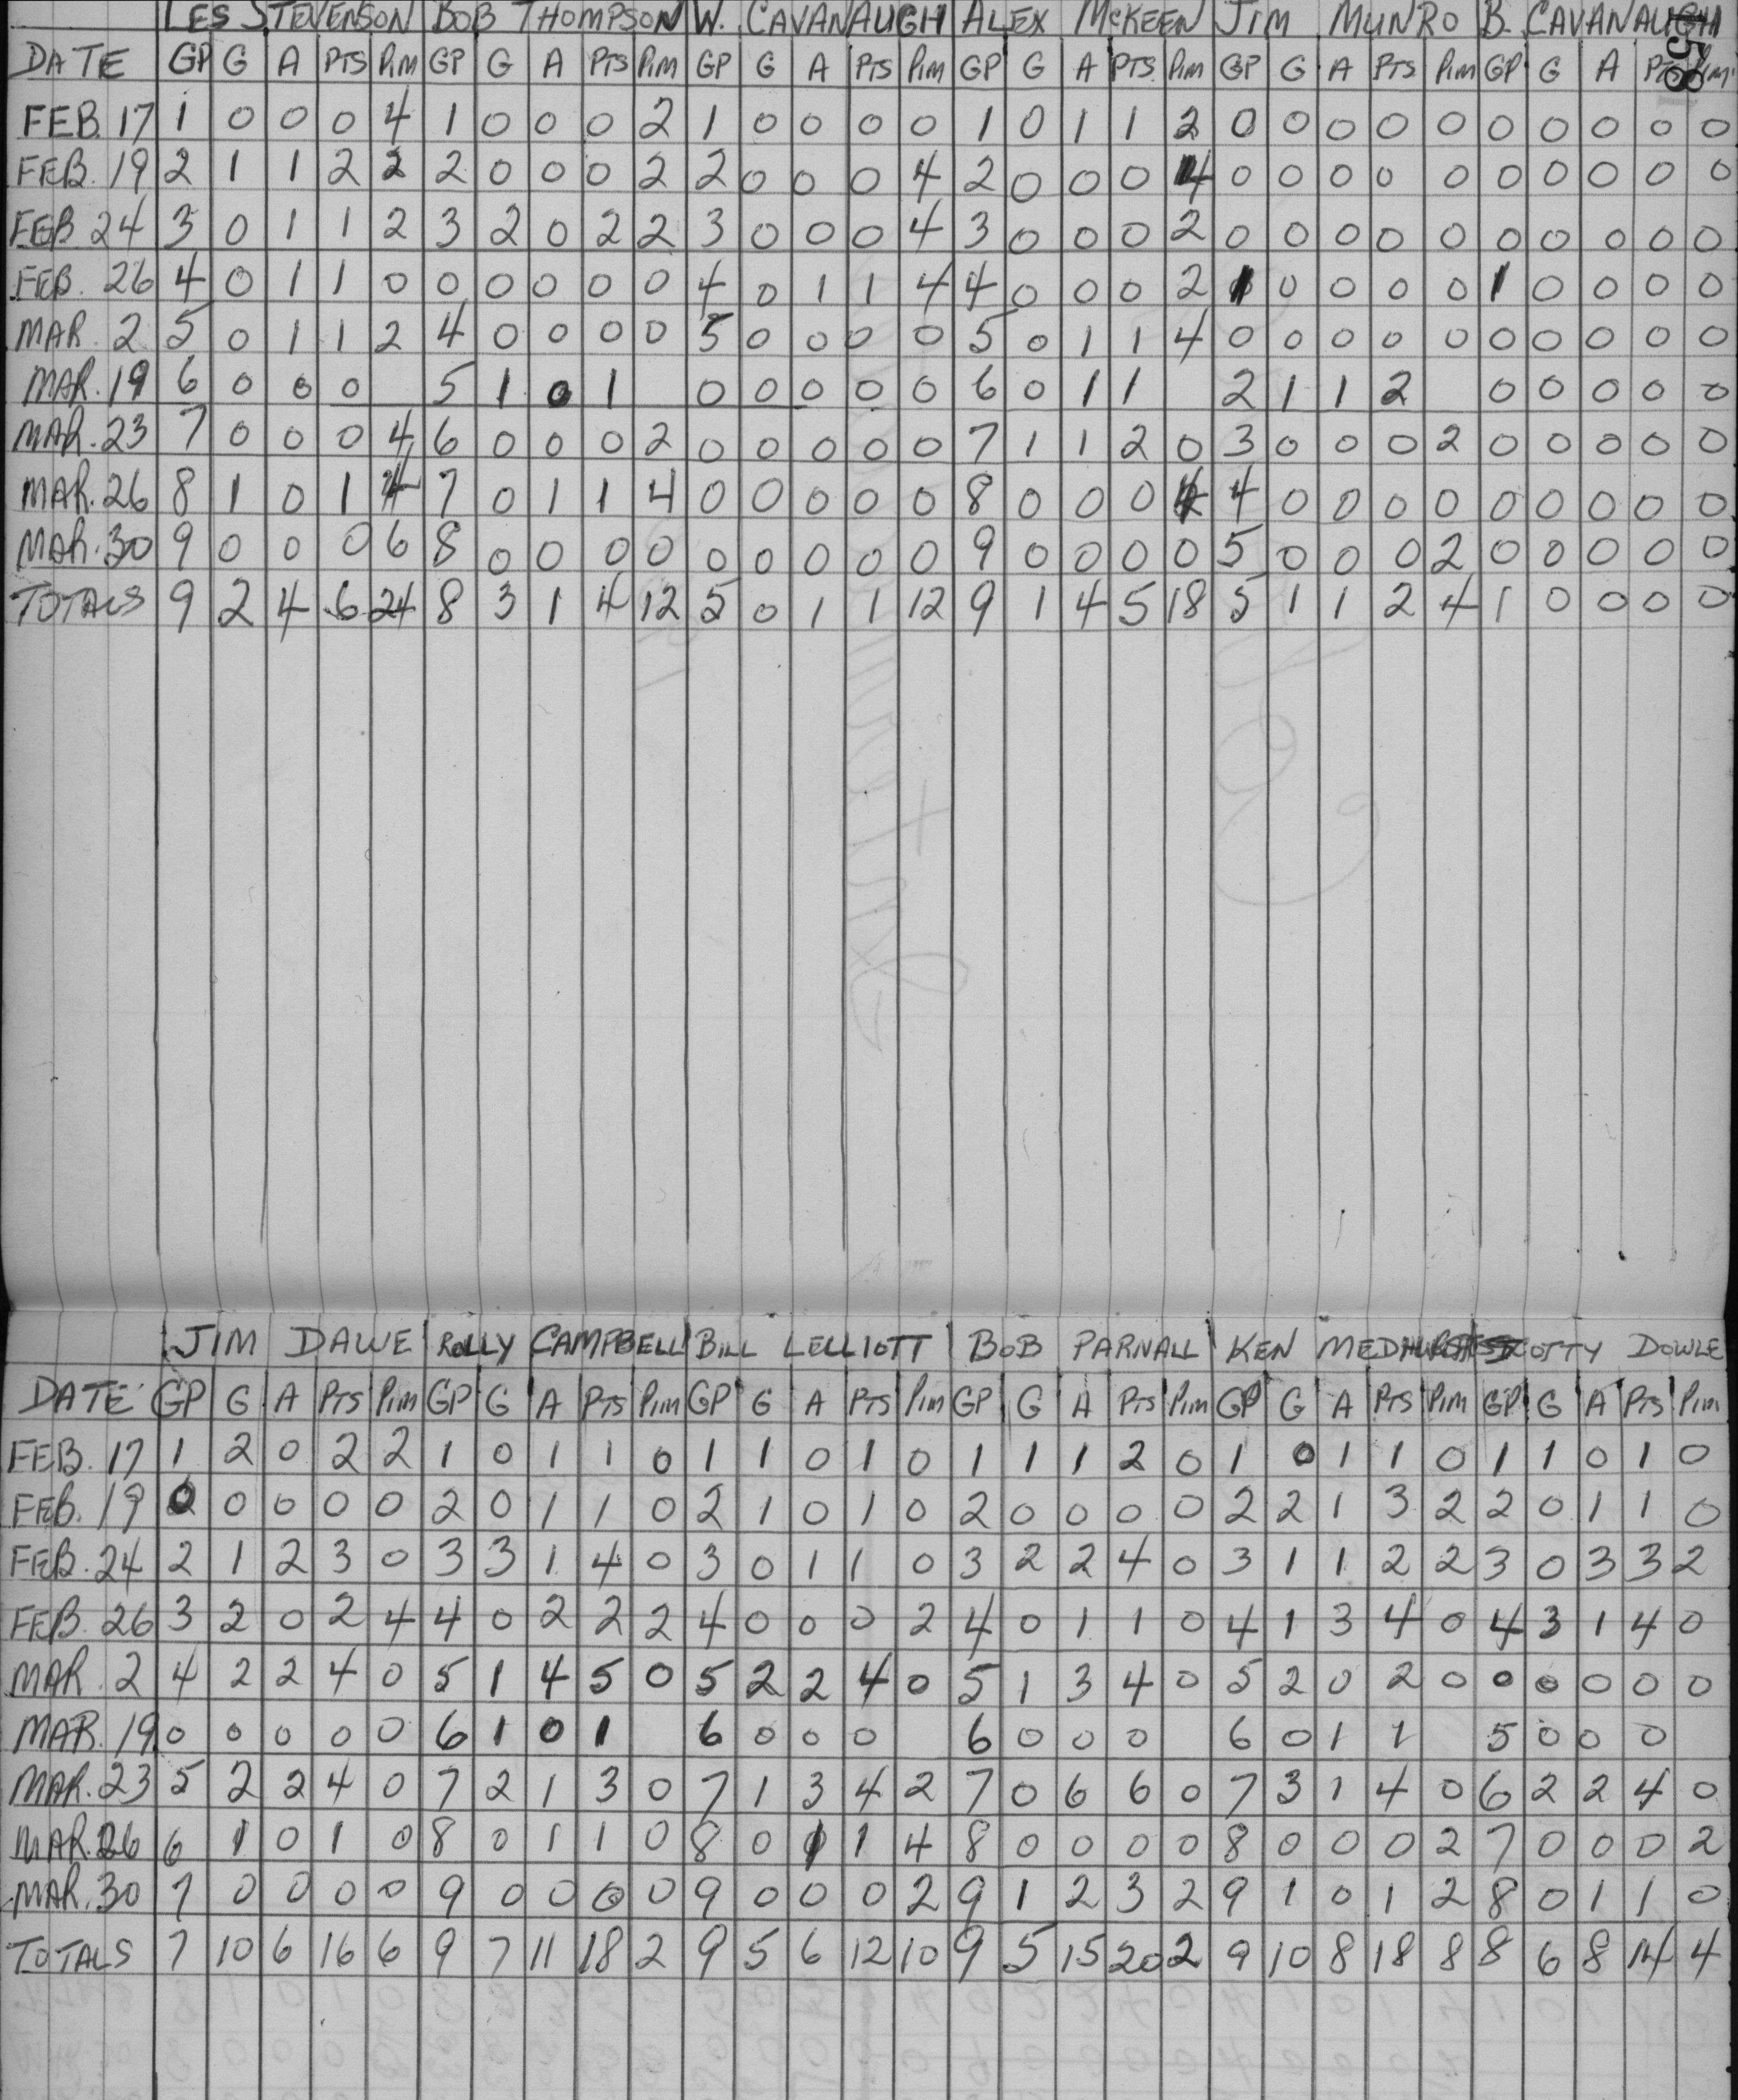 LES STEVENSON BOB THOMPSON W. CAVANAUGH ALEX McKEEN JIM MUNRO B. CAVANAUGH
58
DATE GP G A PTS PIM GP G A PTS PIM GP G A PTS PIM GP G A PTS. PIM GP G A PTS PIM GP G A PIM
FEB. 17 1 0 0 0 4 1 0 0 0 2 1 0 0 0 0 1 0 1 1 2 0 0 0 0 0 0 0 0 0 0
FEB. 19 2 1 1 2 2 2 0 0 0 2 2 0 0 0 4 2 0 0 0 4 0 0 0 0 0 0 0 0 0 0
FEB 24 3 0 1 1 2 3 2 0 2 2 3 0 0 0 4 3 0 0 0 2 0 0 0 0 0 0 0 0 0 0
FEB. 26 4 0 1 1 0 0 0 0 0 0 4 0 1 1 4 4 0 0 0 2 1 0 0 0 0 1 0 0 0 0
MAR. 2 5 0 1 1 2 4 0 0 0 0 5 0 0 0 0 5 0 1 1 4 0 0 0 0 0 0 0 0 0 0
MAR. 19 6 0 0 0 5 1 0 1 0 0 0 0 0 6 0 1 1 2 1 1 2 0 0 0 0 0
MAR. 23 7 0 0 0 4 6 0 0 0 2 0 0 0 0 0 7 1 1 2 0 3 0 0 0 2 0 0 0 0 0
MAR. 26 8 1 0 1 4 7 0 1 1 4 0 0 0 0 0 8 0 0 0 4 4 0 0 0 0 0 0 0 0 0
MAR. 30 9 0 0 0 6 8 0 0 0 0 0 0 0 0 0 9 0 0 0 0 5 0 0 0 2 0 0 0 0 0
TOTALS 9 2 4 6 24 8 3 1 4 12 5 0 1 1 12 9 1 4 5 18 5 1 1 2 4 1 0 0 0 0
JIM DAWE ROLLY CAMPBELL BILL LELLIOTT BOB PARNALL KEN MEDHURST SCOTTY DOWLE
DATE GP G A PTS PIM GP G A PTS PIM GP G A PTS PIM GP G A PTS PIM GP G A PTS PIM GP G A PTS PIM
FEB. 17 1 2 0 2 2 1 0 1 1 0 1 1 0 1 0 1 1 1 2 0 1 0 1 1 0 1 1 0 1 0
FEB. 19 0 0 0 0 0 2 0 1 1 0 2 1 0 1 0 2 0 0 0 0 2 2 1 3 2 2 0 1 1 0
FEB. 24 2 1 2 3 0 3 3 1 4 0 3 0 1 1 0 3 2 2 4 0 3 1 1 2 2 3 0 3 3 2
FEB. 26 3 2 0 2 4 4 0 2 2 2 4 0 0 0 2 4 0 1 1 0 4 1 3 4 0 4 3 1 4 0
MAR. 2 4 2 2 4 0 5 1 4 5 0 5 2 2 4 0 5 1 3 4 0 5 2 0 2 0 0 0 0 0 0
MAR. 19 0 0 0 0 0 6 1 0 1 6 0 0 0 6 0 0 0 6 0 1 1 5 0 0 0
MAR. 23 5 2 2 4 0 7 2 1 3 0 7 1 3 4 2 7 0 6 6 0 7 3 1 4 0 6 2 2 4 0
MAR. 26 6 1 0 1 0 8 0 1 1 0 8 0 1 1 4 8 0 0 0 0 8 0 0 0 2 7 0 0 0 2
MAR. 30 7 0 0 0 0 9 0 0 0 0 9 0 0 0 2 9 1 2 3 2 9 1 0 1 2 8 0 1 1 0
TOTALS 7 10 6 16 6 9 7 11 18 2 9 5 6 12 10 9 5 15 20 2 9 10 8 18 8 8 6 8 14 4